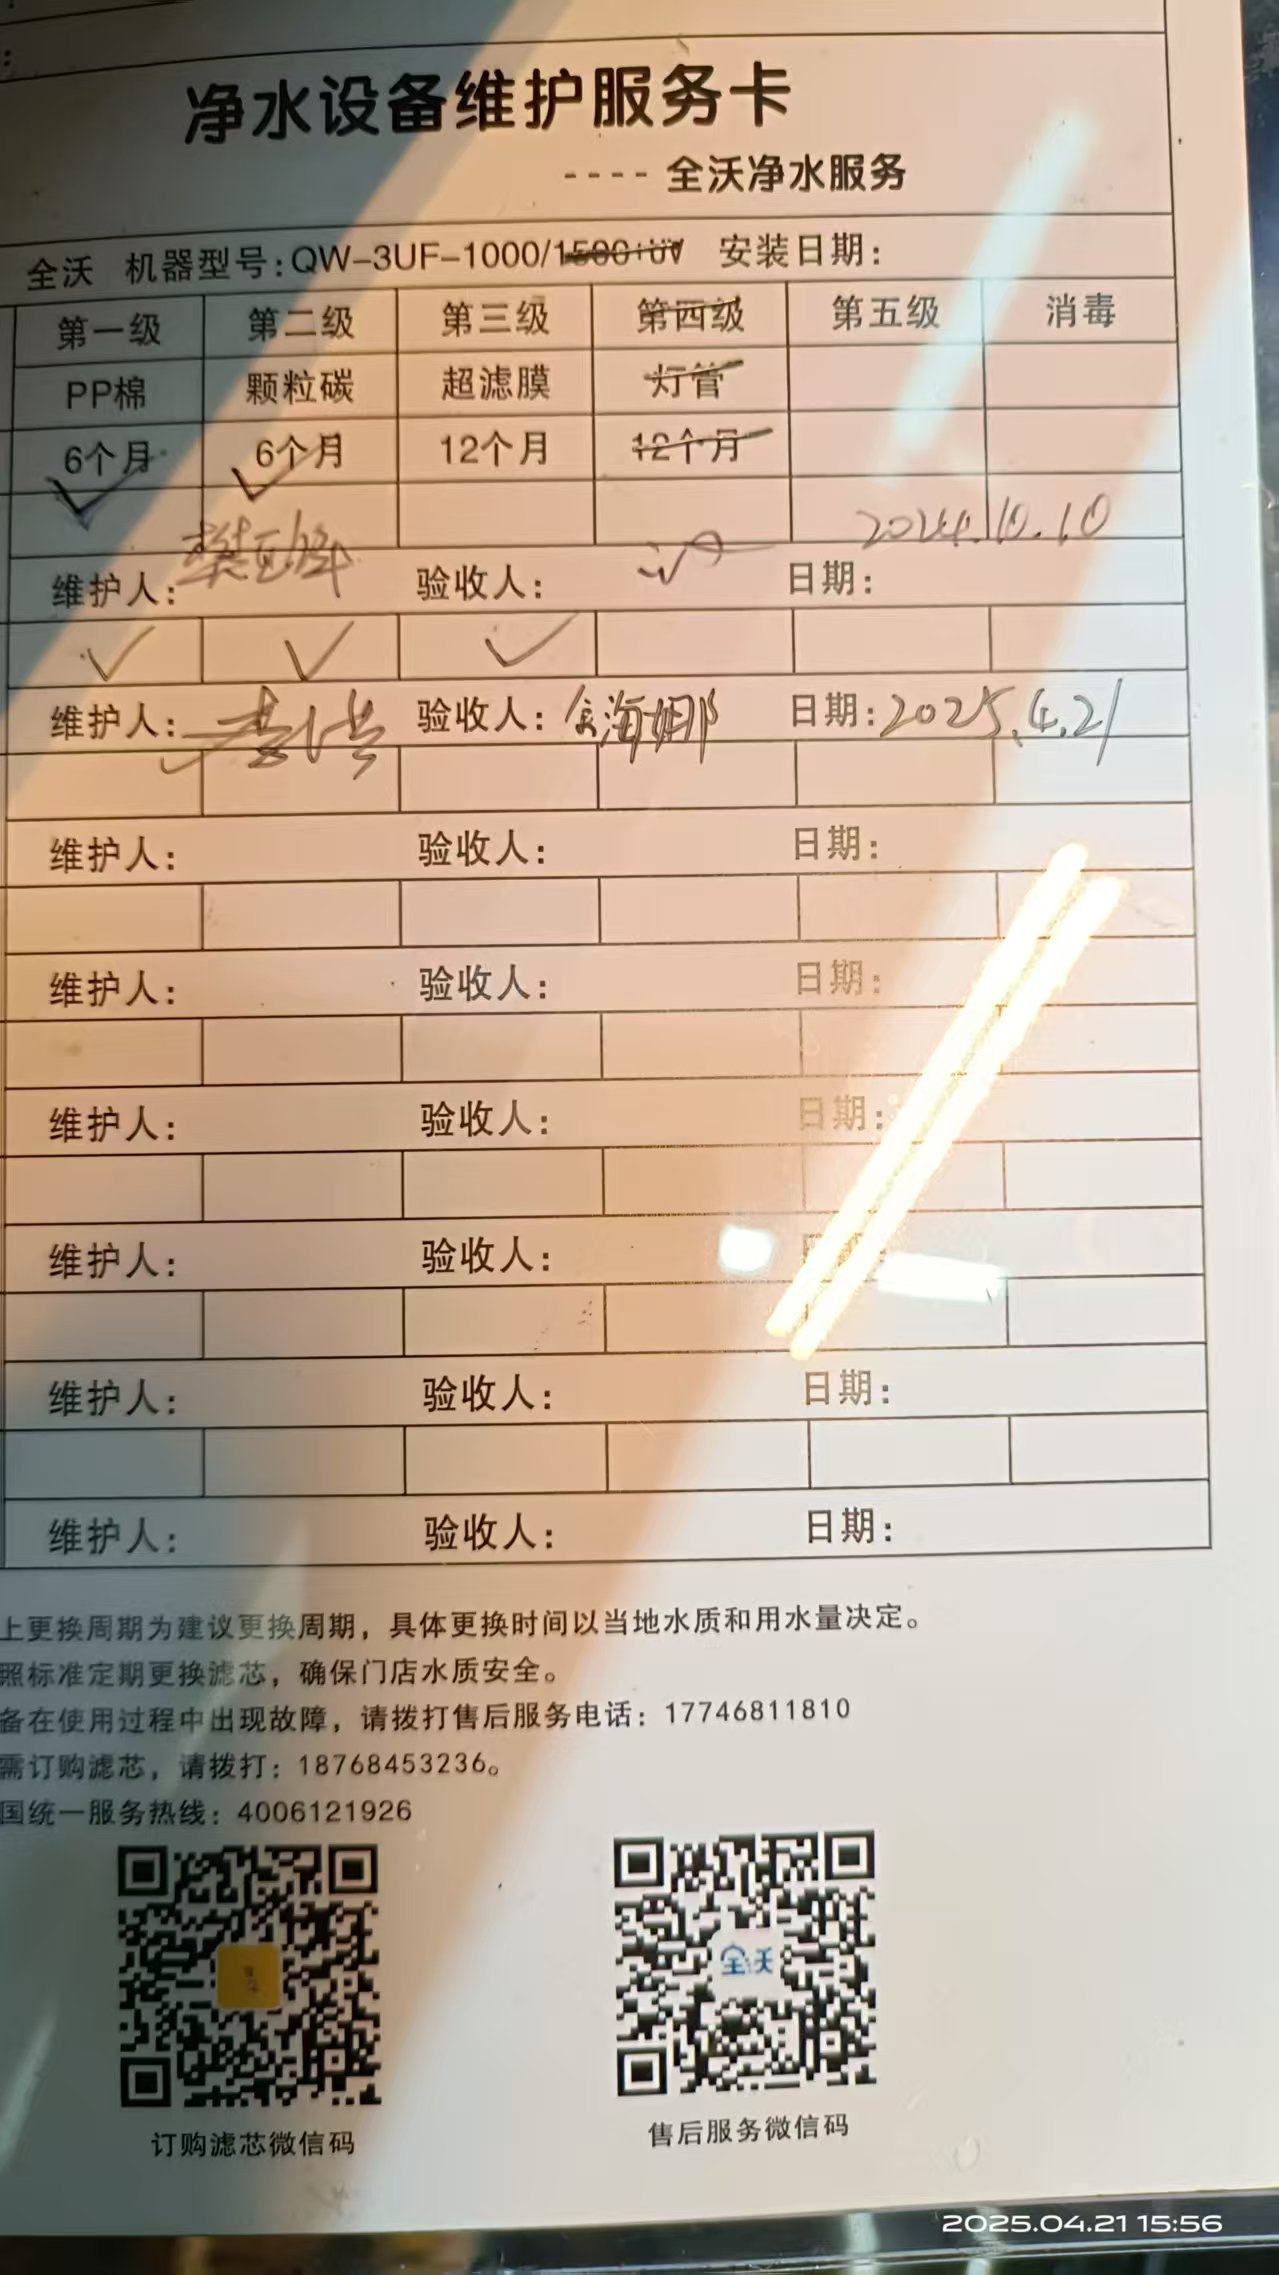 净水设备维护服务卡
---- 全沃净水服务
全沃 机器型号：QW-3UF-1000/1500+UV 安装日期：
第一级 第二级 第三级 第四级 第五级 消毒
PP棉 颗粒碳 超滤膜 灯管
6个月 6个月 12个月 12个月
维护人： 验收人： 日期：2024.10.10
维护人： 验收人：金海娜 日期：2025.4.21
维护人： 验收人： 日期：
维护人： 验收人： 日期：
维护人： 验收人： 日期：
维护人： 验收人：
维护人： 验收人： 日期：
维护人： 验收人： 日期：
上更换周期为建议更换周期，具体更换时间以当地水质和用水量决定。
照标准定期更换滤芯，确保门店水质安全。
备在使用过程中出现故障，请拨打售后服务电话：17746811810
需订购滤芯，请拨打：18768453236。
国统一服务热线：4006121926
全沃
订购滤芯微信码 售后服务微信码
2025.04.21 15:56